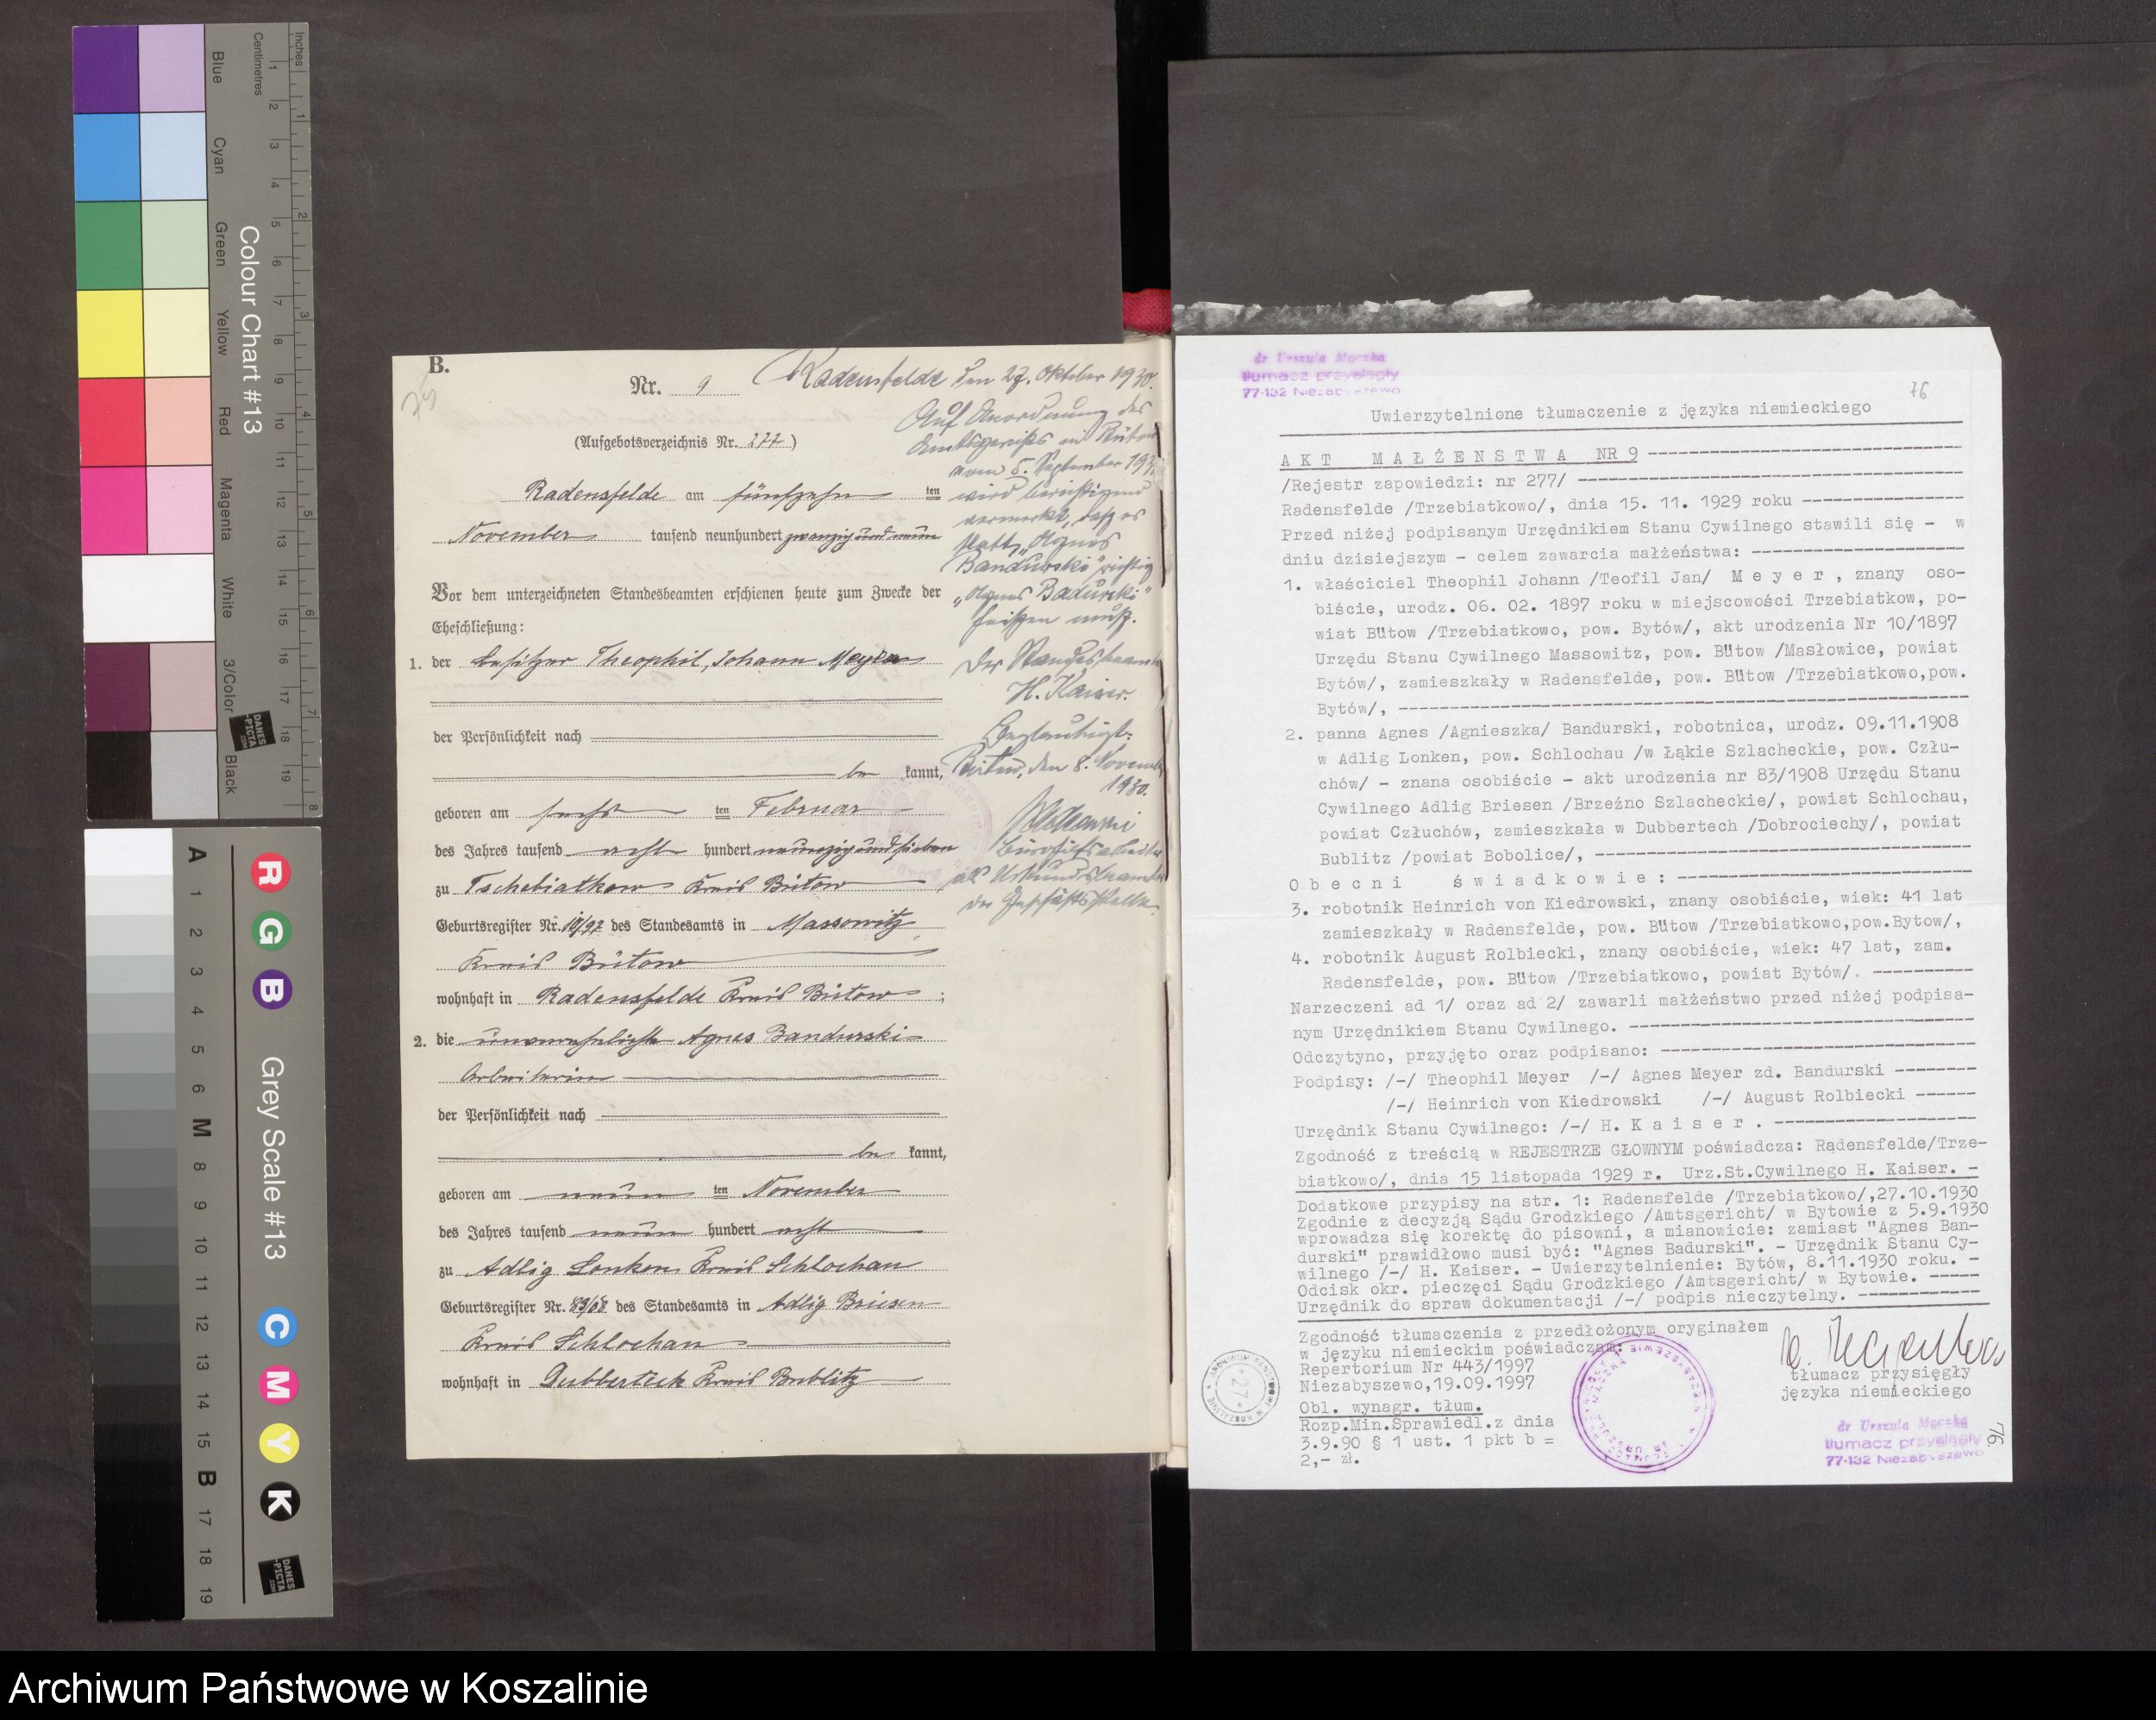 Blue
Cyan
Green
Yellow
Red
Magenta
White
3/Color
Black
Colour Chart #13
Centimetres
Inches
1
2
3
4
5
6
7
8
9
10
11
12
13
14
15
16
17
18
19
1
2
3
4
5
6
7
8
DANES
-PICTA
.COM
A
1
2
3
4
5
6
M
8
9
10
11
12
13
14
15
B
17
18
19
R
G
B
Grey Scale #13
C
M
Y
K
DANES
-PICTA
.COM
B.
Nr. 9
(Aufgebotsverzeichnis Nr. 277)
Radensfelde am fünfzehn ten
November tausend neunhundert zwanzig und neun
Vor dem unterzeichneten Standesbeamten erschienen heute zum Zwecke der
Eheschließung:
1. der Besitzer Theophil, Johann Meyer
der Persönlichkeit nach
be kannt,
geboren am sechs ten Februar
des Jahres tausend acht hundert neunzig und sieben
zu Tschebiatkow Kreis Bütow
Geburtsregister Nr. 10/97 des Standesamts in Massowitz
Kreis Bütow
wohnhaft in Radensfelde Kreis Bütow ;
2. die unverehelichte Agnes Bandurski
Arbeiterin
der Persönlichkeit nach
be kannt,
geboren am neun ten November
des Jahres tausend neun hundert acht
zu Adlig Lonken Kreis Schlochau
Geburtsregister Nr. 83/08 des Standesamts in Adlig Briesen
Kreis Schlochau
wohnhaft in Dubbertech Kreis Bublitz
Radensfelde den 27. Oktober 1930.
Auf Anordnung des
Amtsgerichts in Bütow
vom 5. September 193
wird berichtigend
vermerkt, daß es
statt „Agnes
Bandurski" richtig
„Agnes Badurski"
heißen muß.
Der Standesbeamte
H. Kaiser.
Beglaubigt:
Bütow, den 8. November
1930.
Bürohilfsarbeiter
als Urkundsbeamter
der Geschäftsstelle.
dr Urszula Moczka
tłumacz przysięgły
77-132 Niezabyszewo
76
Uwierzytelnione tłumaczenie z języka niemieckiego
A K T M A Ł Ż E N S T W A NR 9 ----------
/Rejestr zapowiedzi: nr 277/ ----------
Radensfelde /Trzebiatkowo/, dnia 15. 11. 1929 roku ----------
Przed niżej podpisanym Urzędnikiem Stanu Cywilnego stawili się - w
dniu dzisiejszym - celem zawarcia małżeństwa: ----------
1. właściciel Theophil Johann /Teofil Jan/ M e y e r , znany oso-
biście, urodz. 06. 02. 1897 roku w miejscowości Trzebiatkow, po-
wiat Bütow /Trzebiatkowo, pow. Bytów/, akt urodzenia Nr 10/1897
Urzędu Stanu Cywilnego Massowitz, pow. Bütow /Masłowice, powiat
Bytów/, zamieszkały w Radensfelde, pow. Bütow /Trzebiatkowo,pow.
Bytów/, ----------
2. panna Agnes /Agnieszka/ Bandurski, robotnica, urodz. 09.11.1908
w Adlig Lonken, pow. Schlochau /w Łąkie Szlacheckie, pow. Człu-
chów/ - znana osobiście - akt urodzenia nr 83/1908 Urzędu Stanu
Cywilnego Adlig Briesen /Brzeźno Szlacheckie/, powiat Schlochau,
powiat Człuchów, zamieszkała w Dubbertech /Dobrociechy/, powiat
Bublitz /powiat Bobolice/, ----------
O b e c n i ś w i a d k o w i e : ----------
3. robotnik Heinrich von Kiedrowski, znany osobiście, wiek: 41 lat
zamieszkały w Radensfelde, pow. Bütow /Trzebiatkowo,pow.Bytow/,
4. robotnik August Rolbiecki, znany osobiście, wiek: 47 lat, zam.
Radensfelde, pow. Bütow /Trzebiatkowo, powiat Bytów/. ----------
Narzeczeni ad 1/ oraz ad 2/ zawarli małżeństwo przed niżej podpisa-
nym Urzędnikiem Stanu Cywilnego. ----------
Odczytyno, przyjęto oraz podpisano: ----------
Podpisy: /-/ Theophil Meyer /-/ Agnes Meyer zd. Bandurski --------
/-/ Heinrich von Kiedrowski /-/ August Rolbiecki ------
Urzędnik Stanu Cywilnego: /-/ H. K a i s e r . ----------
Zgodność z treścią w REJESTRZE GŁOWNYM poświadcza: Radensfelde/Trze-
biatkowo/, dnia 15 listopada 1929 r. Urz.St.Cywilnego H. Kaiser. -
Dodatkowe przypisy na str. 1: Radensfelde /Trzebiatkowo/,27.10.1930
Zgodnie z decyzją Sądu Grodzkiego /Amtsgericht/ w Bytowie z 5.9.1930
wprowadza się korektę do pisowni, a mianowicie: zamiast "Agnes Ban-
durski" prawidłowo musi być: "Agnes Badurski". - Urzędnik Stanu Cy-
wilnego /-/ H. Kaiser. - Uwierzytelnienie: Bytów, 8.11.1930 roku. -
Odcisk okr. pieczęci Sądu Grodzkiego /Amtsgericht/ w Bytowie. -----
Urzędnik do spraw dokumentacji /-/ podpis nieczytelny. ----------
Zgodność tłumaczenia z przedłożonym oryginałem
w języku niemieckim poświadczam:
Repertorium Nr 443/1997
Niezabyszewo,19.09.1997
Obl. wynagr. tłum.
Rozp.Min.Sprawiedl.z dnia
3.9.90 § 1 ust. 1 pkt b =
2,- zł.
tłumacz przysięgły
języka niemieckiego
dr Urszula Moczka
tłumacz przysięgły
77-132 Niezabyszewo
76.
ARCHIWUM PAŃSTWOWE W KOSZALINIE
27
Archiwum Państwowe w Koszalinie